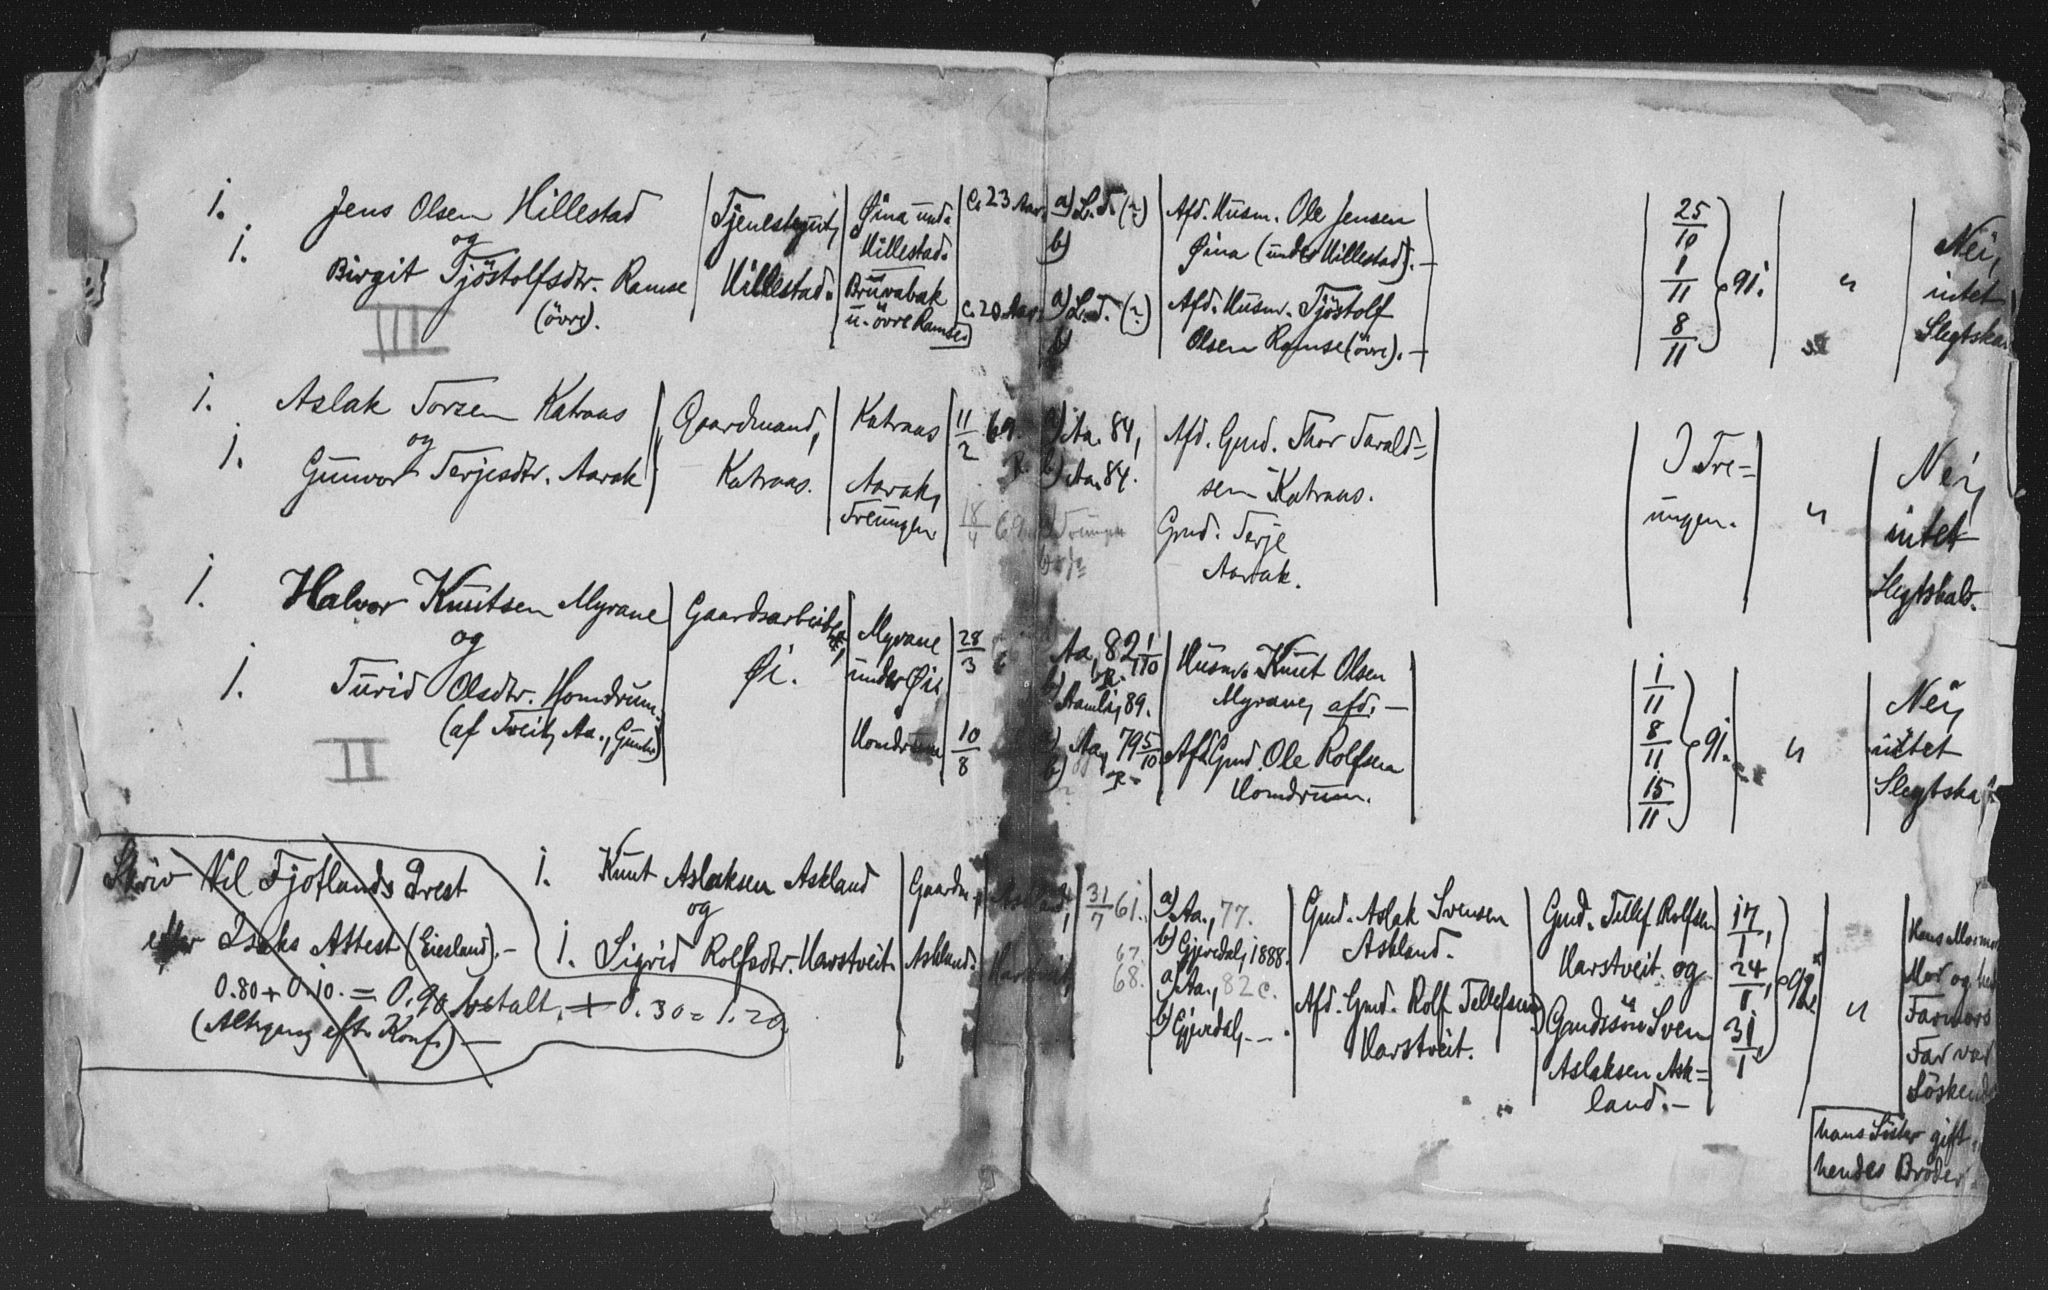 1. Jens Olsen Hillestad
og
1. Birgit Tjöstolfsdtr. Ramse
(övre).
III
Tjenestegut,
Hillestad.
Øina und.
Hillestad.
Bruvabak
u. övre Ramse.
C. 23 Aar.
C. 20 Aar.
a) L. d. (?)
b)
a) L. d. (?)
b)
Afd. Husm. Ole Jensen
Øina (under Hillestad). —
Afd. Husm. Tjöstolf
Olsen Ramse (övre). —
25/10
1/11
8/11
91.
"
Nei,
intet
Slegtska
1. Aslak Torsen Katraas
og
1. Gunvor Terjesdtr. Aarak
Gaardmand,
Katraas.
Katraas
Aarak,
Treungen
11/2 69.
18/4 69
a) Aa. 84,
b) Aa. 84.
Afd. Gmd. Thor Tarald=
sen Katraas.
Gmd. Terje
Aarak.
I Tre=
ungen.
"
Nei,
intet
Slegtskab.
1. Halvor Knutsen Myrane
og
1. Turid Olsdtr. Homdrum.
(af Tveit, Aa., )
II
Gaardsarbeider,
Øi.
Myrane
under Øi
Homdrum
28/3 6
10/8
Aa, 82 1/10
b) Aamli, 89.
a) Aa, 79 5/10
b)
Husm. Knut Olsen
Myrane, afd. —
Afd. Gmd. Ole Rolfsen
Homdrum.
1/11
8/11
15/11
91.
"
Nei,
intet
Slegtska
Skriv til Fjotlands Prest
efter Isaks Attest (Eiesland). —
0.80 + 0.10. = 0.90 betalt, + 0.30 = 1.20
(Altergang efter Konf.) —
1. Knut Aslaksen Askland
og
1. Sigrid Rolfsdtr. Harstveit.
Gaardm.,
Askland.
Askland,
Harstveit,
31/7 61.
67.
68.
a) Aa., 77.
b) Gjøvdal, 1888.
a) Aa., 82 c.
b) Gjøvdal, — .
Gmd. Aslak Svensen
Askland.
Afd. Gmd. Rolf Tellefsen
Harstveit.
Gmd. Tellef Rolfsen
Harstveit og
Gmdssön Sven
Aslaksen Ask=
land. —
17/1,
24/1,
31/1,
92.
"
Hans Mormor
Mor og hen
Farmors
Far var
Söskende
hans Söster gift
hendes Broder